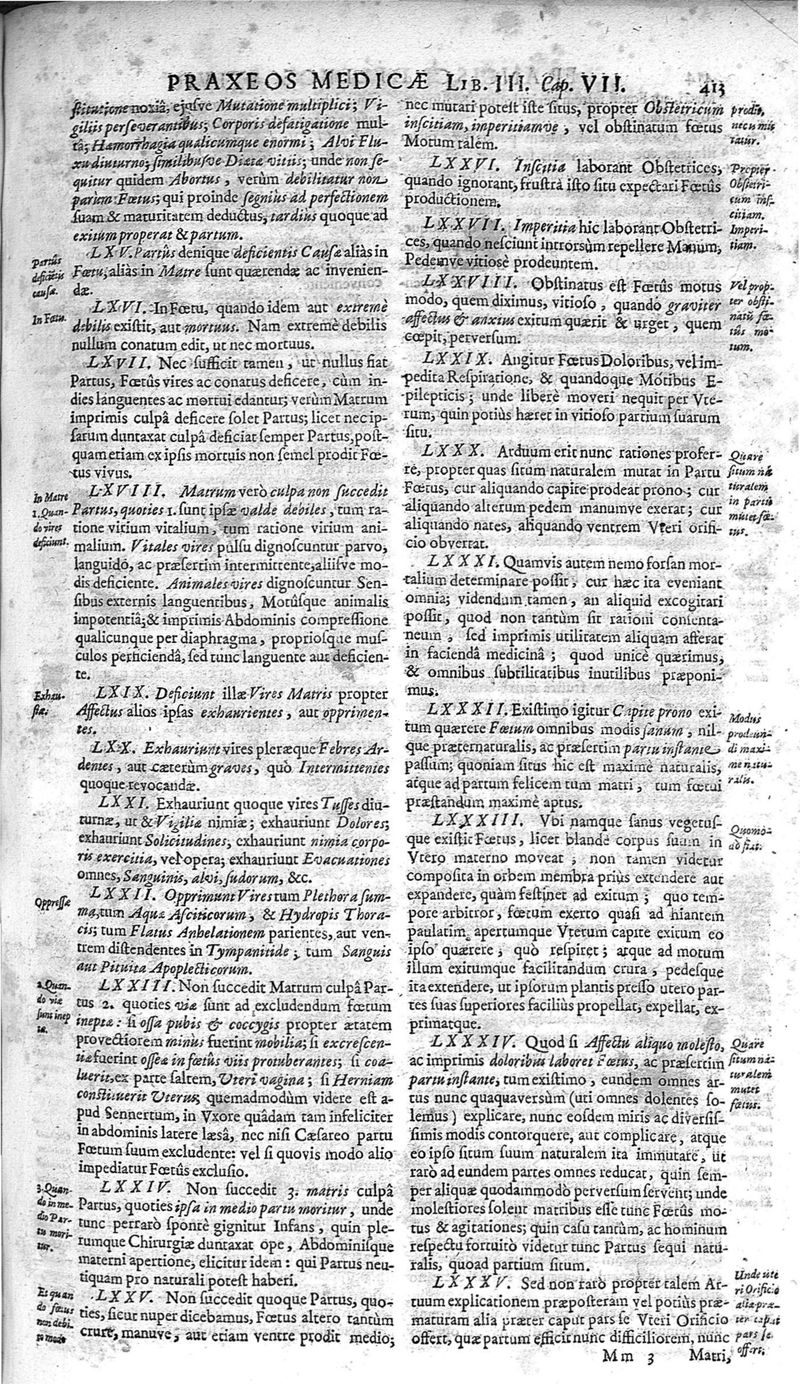 PRAXEOS MEDICÆ LIB. III. Cap. VII. 413
stitutione noxiâ; ejusve Mutatione multiplici; Vi-
giliis perseverantibus; Corporis defatigatione mul-
tâ; Hæmorrhagia qualicumque enormi; Alvi Flu-
xu diuturno; similibusve Diætæ vitiis; unde non se-
quitur quidem Abortus, verùm debilitatur non
parùm Fœtus; qui proinde segniùs ad perfectionem
suam & maturitatem deductus, tardiùs quoque ad
exitum properat & partum.
LXV. Partûs denique deficientis Causæ aliàs in
Fœtu, aliàs in Matre sunt quærendæ ac invenien-
dæ.
Partûs
deficiẽtis
causæ.
LXVI. In Fœtu, quando idem aut extremè
debilis existit, aut mortuus. Nam extremè debilis
nullum conatum edit, ut nec mortuus.
In Fœtu.
LXVII. Nec sufficit tamen, ut nullus fiat
Partus, Fœtûs vires ac conatus deficere, cùm in-
dies languentes ac mortui edantur; verùm Matrum
imprimis culpâ deficere solet Partus; licet nec ip-
sarum duntaxat culpâ deficiat semper Partus, post-
quam etiam ex ipsis mortuis non semel prodit Fœ-
tus vivus.
LXVIII. Matrum verò culpa non succedit
Partus, quoties 1. sunt ipsæ valde debiles, tum ra-
tione virium vitalium, tum ratione virium ani-
malium. Vitales vires pulsu dignoscuntur parvo,
languido, ac præsertim intermittente, aliisve mo-
dis deficiente. Animales vires dignoscuntur Sen-
sibus externis languentibus, Motûsque animalis
impotentiâ; & imprimis Abdominis compressione
qualicunque per diaphragma, propriosque mus-
culos perficiendâ, sed tunc languente aut deficien-
te.
In Matre
1. Quan-
do vires
deficiunt.
LXIX. Deficiunt illæ Vires Matris propter
Affectus alios ipsas exhaurientes, aut opprimen-
tes.
Exhau-
stæ.
LXX. Exhauriunt vires pleræque Febres Ar-
dentes, aut cæterùm graves, quò Intermittentes
quoque revocandæ.
LXXI. Exhauriunt quoque vires Tusses diu-
turnæ, ut & Vigiliæ nimiæ; exhauriunt Dolores;
exhauriunt Solicitudines; exhauriunt nimia corpo-
ris exercitia, vel opera; exhauriunt Evacuationes
omnes, Sanguinis, alvi, sudorum, &c.
LXXII. Opprimunt Vires tum Plethora sum-
ma, tum Aquæ Asciticorum, & Hydropis Thora-
cis; tum Flatus Anhelationem parientes, aut ven-
trem distendentes in Tympanitide; tum Sanguis
aut Pituita Apoplecticorum.
Oppressæ
LXXIII. Non succedit Matrum culpâ Par-
tus 2. quoties viæ sunt ad excludendum fœtum
ineptæ: si ossa pubis & coccygis propter ætatem
provectiorem minus fuerint mobilia; si excrescen-
tiæ fuerint osseæ in fœtûs viis protuberantes; si coa-
luerit, ex parte saltem, Uteri vagina; si Herniam
constituerit Uterus; quemadmodùm videre est a-
pud Sennertum, in Uxore quâdam tam infeliciter
in abdominis latere læsâ, nec nisi Cæsareo partu
Fœtum suum excludente: vel si quovis modo alio
impediatur Fœtûs exclusio.
2. Quan-
do viæ
sunt inep
tæ.
LXXIV. Non succedit 3. matris culpâ
Partus, quoties ipsa in medio partu moritur, unde
tunc perrarò spontè gignitur Infans, quin ple-
rumque Chirurgiæ duntaxat ope, Abdominisque
materni apertione, elicitur idem: qui Partus neu-
tiquam pro naturali potest haberi.
3. Quan-
do in me-
dio Par-
tu mori-
tur.
LXXV. Non succedit quoque Partus, quo-
ties, sicut nuper dicebamus, Fœtus altero tantùm
crure, manuve, aut etiam ventre prodit medio;
Et quan
do fœtus
non debi-
to modo
nec mutari potest iste situs, propter Obstetricum
inscitiam, imperitiamve, vel obstinatum fœtus
Motum talem.
prodit,
nec eũ mu
tatur.
LXXVI. Inscitia laborant Obstetrices,
quando ignorant, frustrà isto situ expectari Fœtûs
productionem.
Propter
Obstetri-
cum ins-
citiam.
LXXVII. Imperitia hic laborant Obstetri-
ces, quando nesciunt introrsùm repellere Manum,
Pedemve vitiosè prodeuntem.
Imperi-
tiam.
LXXVIII. Obstinatus est Fœtûs motus
modo, quem diximus, vitioso, quando graviter
affectus & anxius exitum quærit & urget, quem
cœpit, perversum.
Vel prop-
ter obsti-
natũ fœ-
tûs mo-
tum.
LXXIX. Angitur Fœtus Doloribus, vel im-
pedita Respiratione, & quandoque Motibus E-
pilepticis; unde liberè moveri nequit per Vte-
rum, quin potiùs hæret in vitioso partium suarum
situ.
LXXX. Arduum erit nunc rationes profer-
re, propter quas sitùm naturalem mutat in Partu
Fœtus, cur aliquando capite prodeat prono; cur
aliquando alterum pedem manumve exerat; cur
aliquando nates, aliquando ventrem Vteri orifi-
cio obvertat.
Quare
situm nã
turalem
in partu
mutet fœ-
tus.
LXXXI. Quamvis autem nemo forsan mor-
talium determinare possit, cur hæc ita eveniant
omnia; videndum tamen, an aliquid excogitari
possit, quod non tantùm sit rationi consenta-
neum, sed imprimis utilitatem aliquam afferat
in faciendâ medicinâ; quod unicè quærimus,
& omnibus subtilitatibus inutilibus præponi-
mus.
LXXXII. Existimo igitur Capite prono exi-
tum quærere Fœtum omnibus modis sanum, nil-
que præternaturalis, ac præsertim partu instante
passum; quoniam situs hic est maximè naturalis,
atque ad partum felicem tum matri, tum fœtui
præstandum maximè aptus.
Modus
prodeun-
di maxi-
mè natu-
ralis.
LXXXIII. Vbi namque sanus vegetus-
que existit Fœtus, licet blandè corpus suum in
Vtero materno moveat, non tamen videtur
composita in orbem membra priùs extendere aut
expandere, quàm festinet ad exitum; quo tem-
pore arbitror, fœtum exerto quasi ad hiantem
paulatim, apertumque Vterum capite exitum eo
ipso quærere, quò respiret; atque ad motum
illum exitumque facilitandum crura, pedesque
ita extendere, ut ipsorum plantis presso utero par-
tes suas superiores faciliùs propellat, expellat, ex-
primatque.
Quomo-
do fiat.
LXXXIV. Quod si Affectu aliquo molesto,
ac imprimis doloribus laboret Fœtus, ac præsertim
partu instante, tum existimo, eundem omnes ar-
tus nunc quaquaversùm (uti omnes dolentes so-
lemus) explicare, nunc eosdem miris ac diversis-
simis modis contorquere, aut complicare, atque
eo ipso situm suum naturalem ita immutare, ut
rarò ad eundem partes omnes reducat, quin sem-
per aliquæ quodammodò perversum servent; unde
molestiores solent matribus esse tunc Fœtus mo-
tus & agitationes; quin casu tantùm, ac hominum
respectu fortuitò videtur tunc Partus sequi natu-
ralis, quoad partium situm.
Quare
situm na-
turalem
mutet
fœtus.
LXXXV. Sed non rarò propter talem Ar-
tuum explicationem præposteram vel potiùs præ-
maturam alia præter caput pars se Vteri Orificio
offert, quæ partum efficit nunc difficiliorem, nunc
Unde ute
ri Orificio
alia præ-
ter caput
pars se
offert.
Mm 3 Matri,